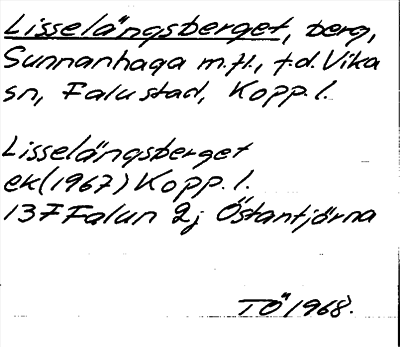 Lisselängsberget, berg,
Sunnanhaga m.fl., f.d. Vika
sn, Falu stad, Kopp. l.
Lisselängsberget
ek (1967) Kopp. l.
13F Falun 2j Östantjärna
TÖ 1968.